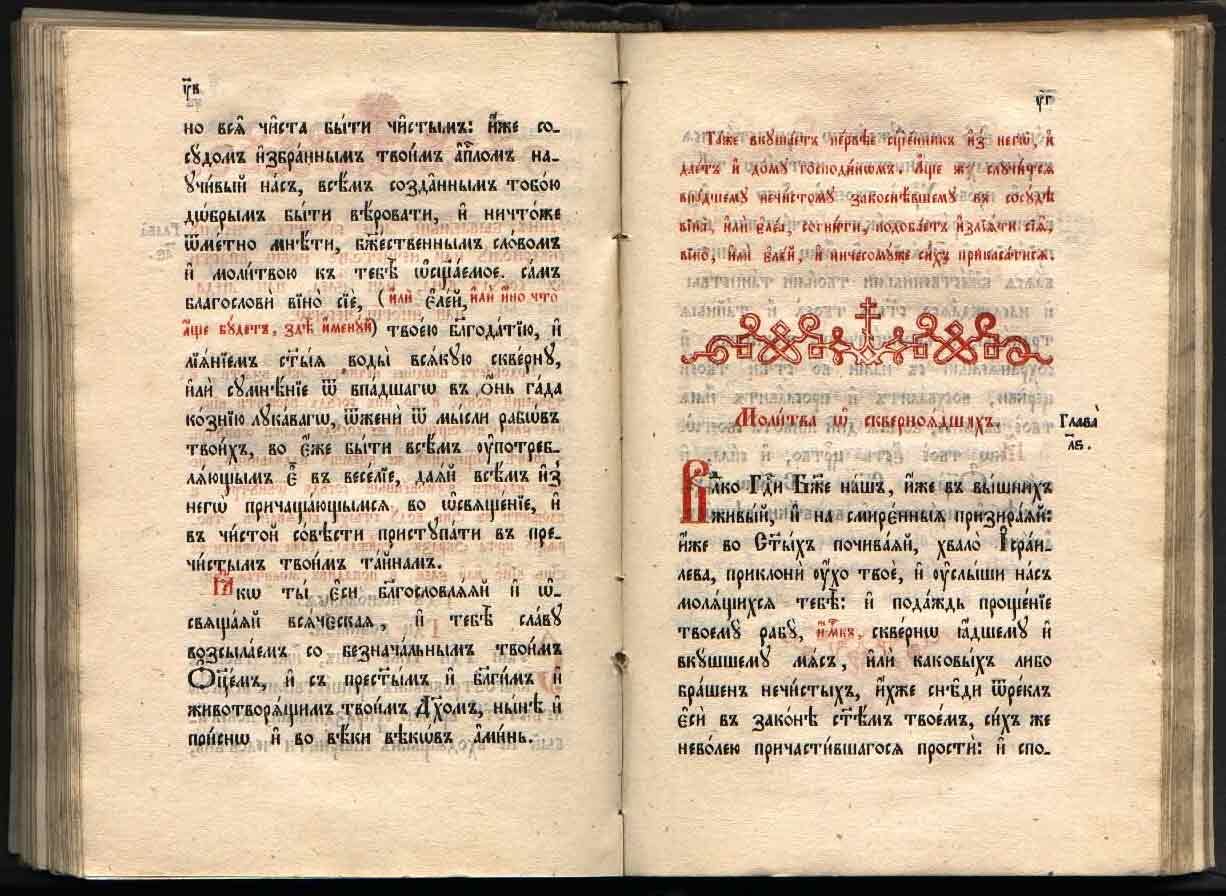 ув
но всѧ̑ чи̑ста бы́ти чи̑стымъ: и҆́же со-
сꙋ́домъ и҆збра́ннымъ твои́мъ а҆пⷭ҇ломъ на-
ꙋчи́вый на́съ, всѣ̑мъ созда̑ннымъ тобо́ю
дѡ́брымъ бы́ти вѣ́ровати, и҆ ничто́же
ѿме́тно мнѣ́ти, бж҃е́ственнымъ сло́вомъ
и҆ моли́твою къ тебѣ̀ ѡ҆сщ҃а́емое. са́мъ
благословѝ вїно̀ сїѐ, (и҆лѝ є҆ле́й, и҆лѝ и҆́но что
а҆́ще бꙋ́детъ, здѣ̀ и҆менꙋ́й) твое́ю бл҃года́тїю, и҆
лїѧ́нїемъ ст҃ы́ѧ воды̀ всѧ́кꙋю скве́рнꙋ,
и҆лѝ сꙋмнѣ́нїе ѿ впа́дшагѡ въ ѻ҆́нь га́да
ко́знїю лꙋка́вагѡ, ѿженѝ ѿ мы́сли рабѡ́въ
твои́хъ, во є҆́же бы́ти всѣ̑мъ ᲂу҆потреб-
лѧ́ющымъ є҆̀ въ весе́лїе, даѧ́й всѣ̑мъ и҆з̾
негѡ̀ причаща́ющымсѧ во ѡ҆свѧще́нїе, и҆
въ чи́стой со́вѣсти пристꙋпа́ти къ пре-
чи́стымъ твои́мъ та́йнамъ.
Ꙗ҆́кѡ ты̀ є҆сѝ бл҃гословлѧ́ѧй и҆ ѡ҆-
свѧща́ѧй всѧ́ческаѧ, и҆ тебѣ̀ сла́вꙋ
возсыла́емъ со безнача́льнымъ твои́мъ
Ѻ҆ц҃е́мъ, и҆ съ прест҃ы́мъ и҆ бл҃ги́мъ и҆
животворѧ́щимъ твои́мъ Дх҃омъ, ны́нѣ и҆
при́снѡ и҆ во вѣ́ки вѣкѡ́въ а҆ми́нь.
уг
Та́же вкꙋша́етъ пе́рвѣе сщ҃е́нникъ и҆з̾ негѡ̀, и҆
дае́тъ и҆ до́мꙋ господи́нѡмъ. А҆́ще же слꙋчи́тсѧ
впа́дшемꙋ нечи́стомꙋ закоснѣ́вшемꙋ въ сосꙋ́дѣ
вїна̀, и҆лѝ є҆ле́а, согни́ти, подоба́етъ и҆злїѧ́ти сїѧ̑,
вїно̀, и҆лѝ є҆ле́й, и҆ ничесомꙋ́же си́хъ прикаса́тисѧ.
Моли́тва ѡ҆ скверноѧ́дшихъ.
Глава̀
л҃ѕ.
Влⷣко Гдⷭ҇и Бж҃е на́шъ, и҆́же въ вы́шнихъ
живы́й, и҆ на смире̑нныѧ призира́ѧй:
и҆́же во Ст҃ы́хъ почива́ѧй, хвало̀ І҆сра́и-
лева, приклонѝ ᲂу҆́хо твоѐ, и҆ ᲂу҆слы́ши на́съ
молѧ́щихсѧ тебѣ̀: и҆ пода́ждь проще́нїе
твоемꙋ̀ рабꙋ̀, и҆́м​къ, скве́рнѡ ꙗ҆́дшемꙋ и҆
вкꙋ́шшемꙋ мѧ́съ, и҆лѝ каковы́хъ либо
бра́шенъ нечи́стыхъ, и҆́хже снѣ́ди ѿре́клъ
є҆сѝ въ зако́нѣ ст҃ѣ́мъ твое́мъ, си́хъ же
нево́лею причасти́вшагосѧ простѝ: и҆ спо-